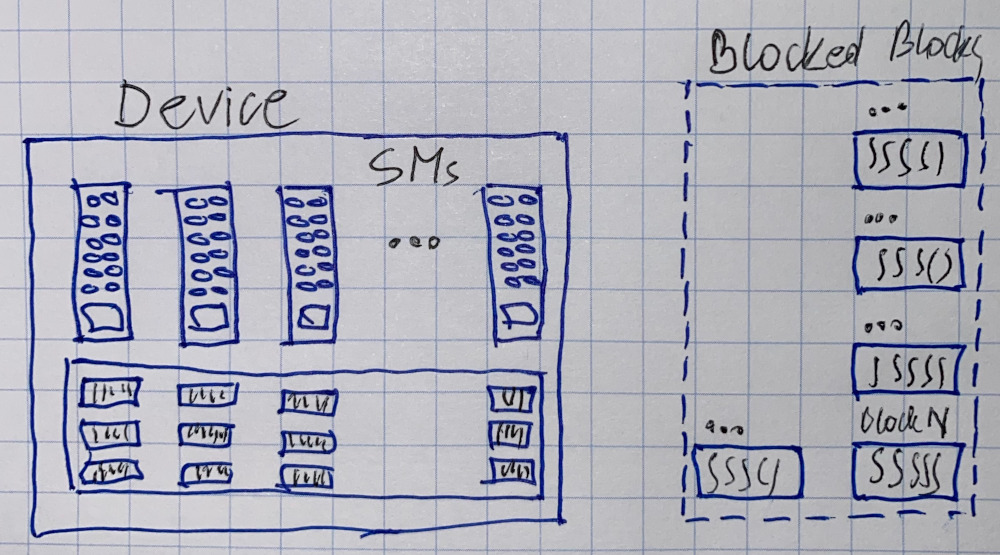 Device
SMs
Blocked Blocks
...
...
...
...
...
Block N